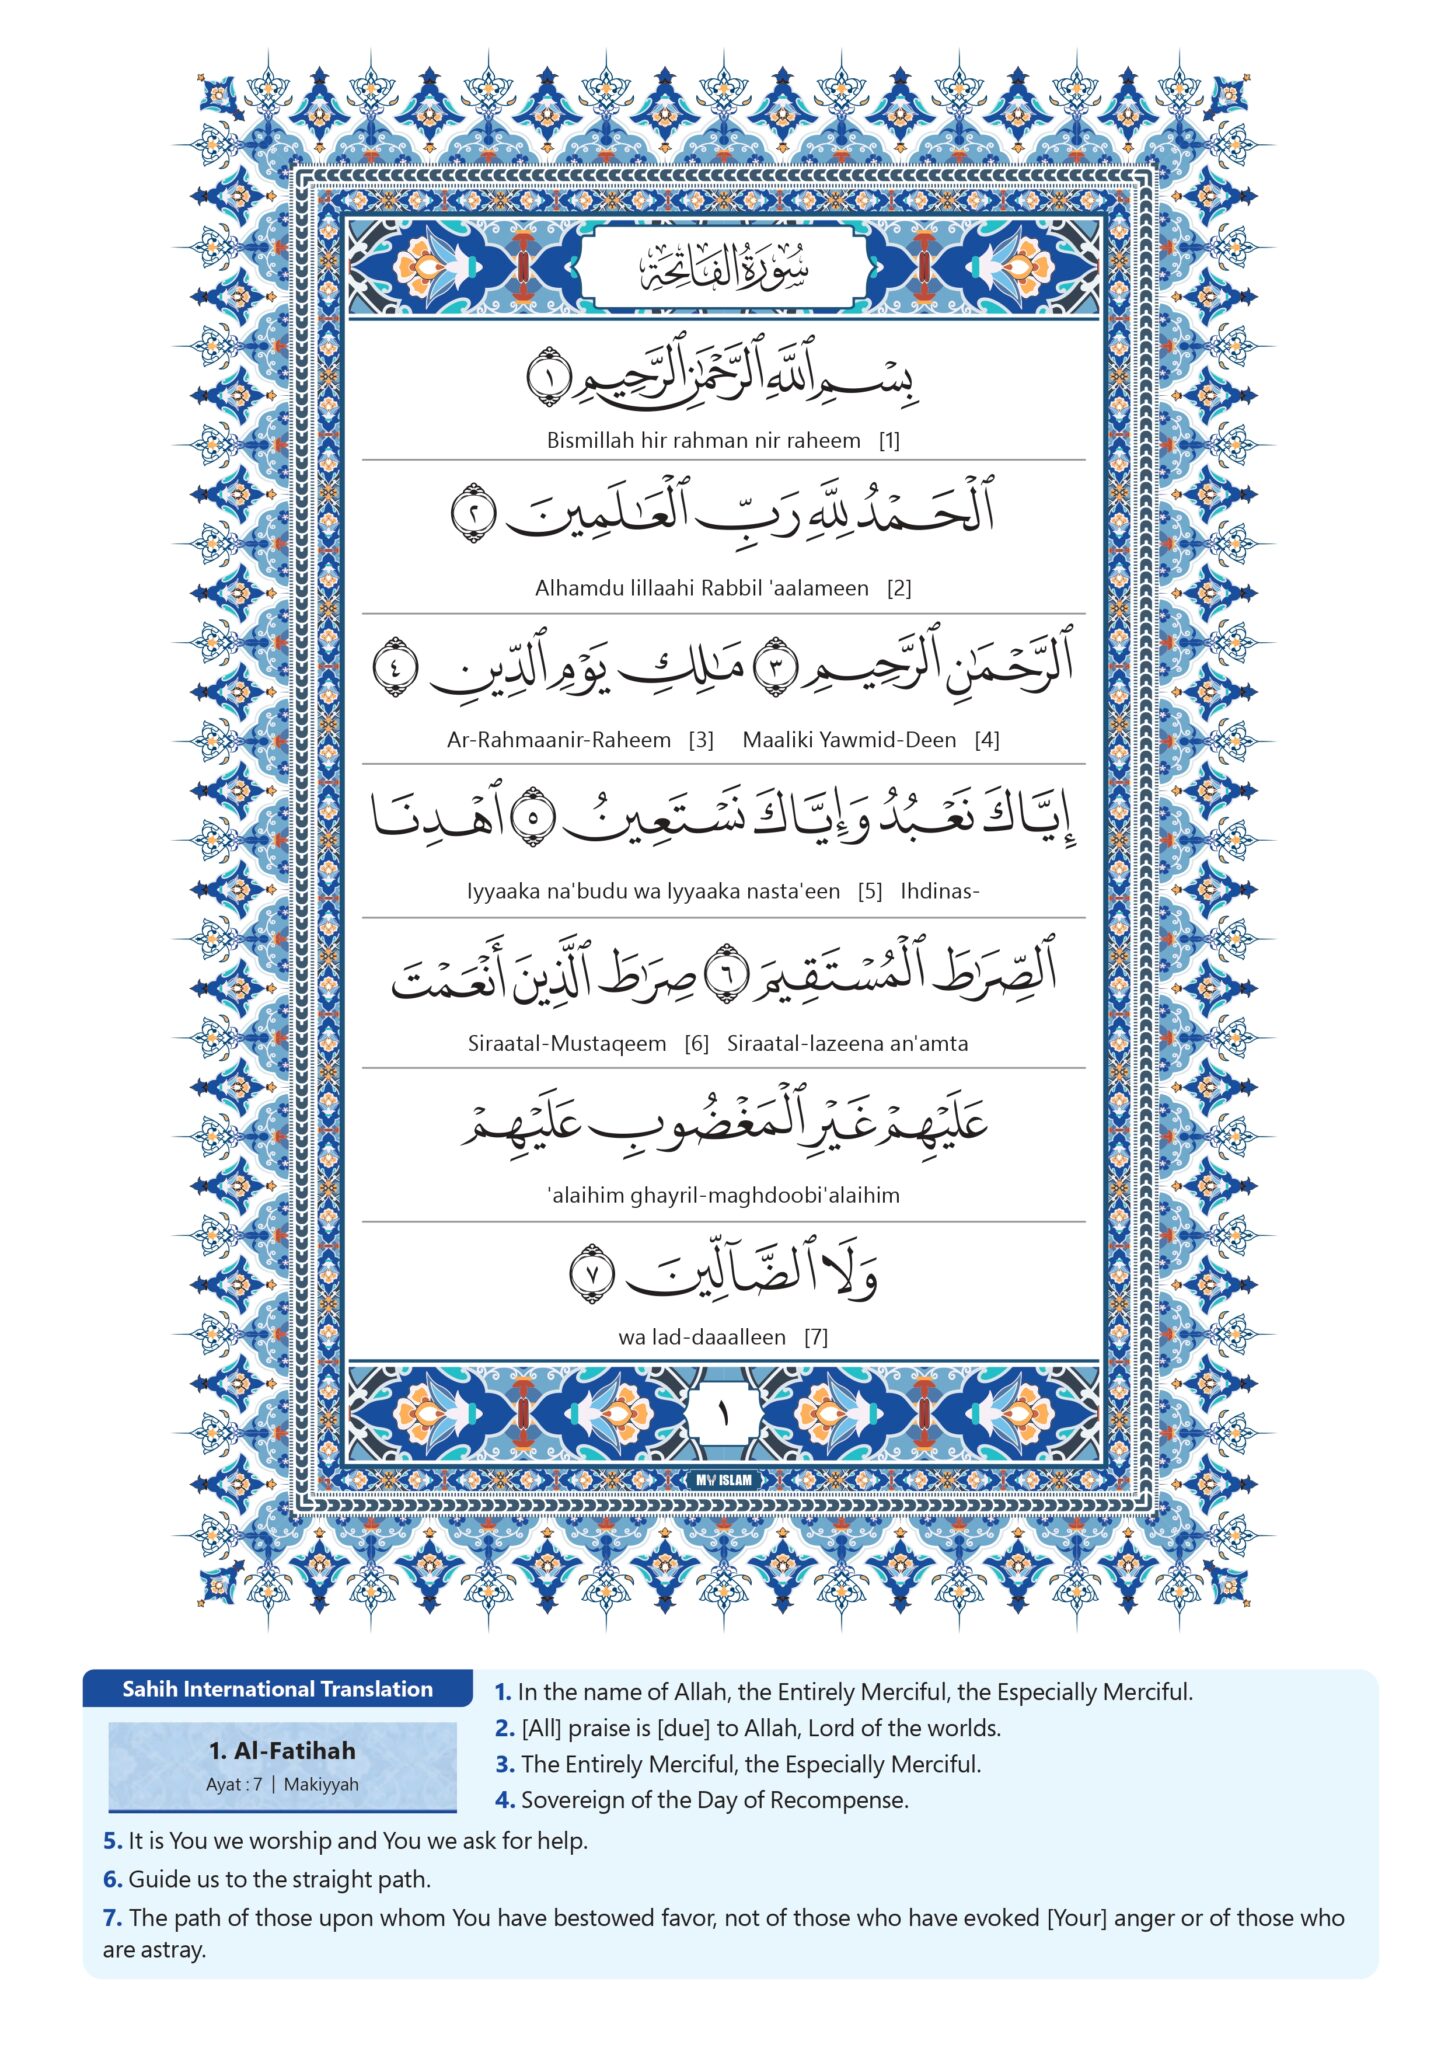 سُورَةُ الفَاتِحَة
بِسْمِ ٱللَّهِ ٱلرَّحْمَٰنِ ٱلرَّحِيمِ ١
Bismillah hir rahman nir raheem [1]
ٱلْحَمْدُ لِلَّهِ رَبِّ ٱلْعَٰلَمِينَ ٢
Alhamdu lillaahi Rabbil 'aalameen [2]
ٱلرَّحْمَٰنِ ٱلرَّحِيمِ ٣ مَٰلِكِ يَوْمِ ٱلدِّينِ ٤
Ar-Rahmaanir-Raheem [3] Maaliki Yawmid-Deen [4]
إِيَّاكَ نَعْبُدُ وَإِيَّاكَ نَسْتَعِينُ ٥ ٱهْدِنَا
Iyyaaka na'budu wa lyyaaka nasta'een [5] Ihdinas-
ٱلصِّرَٰطَ ٱلْمُسْتَقِيمَ ٦ صِرَٰطَ ٱلَّذِينَ أَنْعَمْتَ
Siraatal-Mustaqeem [6] Siraatal-lazeena an'amta
عَلَيْهِمْ غَيْرِ ٱلْمَغْضُوبِ عَلَيْهِمْ
'alaihim ghayril-maghdoobi'alaihim
وَلَا ٱلضَّآلِّينَ ٧
wa lad-daaalleen [7]
١
MY ISLAM
Sahih International Translation
1. Al-Fatihah
Ayat : 7 | Makiyyah
1. In the name of Allah, the Entirely Merciful, the Especially Merciful.
2. [All] praise is [due] to Allah, Lord of the worlds.
3. The Entirely Merciful, the Especially Merciful.
4. Sovereign of the Day of Recompense.
5. It is You we worship and You we ask for help.
6. Guide us to the straight path.
7. The path of those upon whom You have bestowed favor, not of those who have evoked [Your] anger or of those who
are astray.